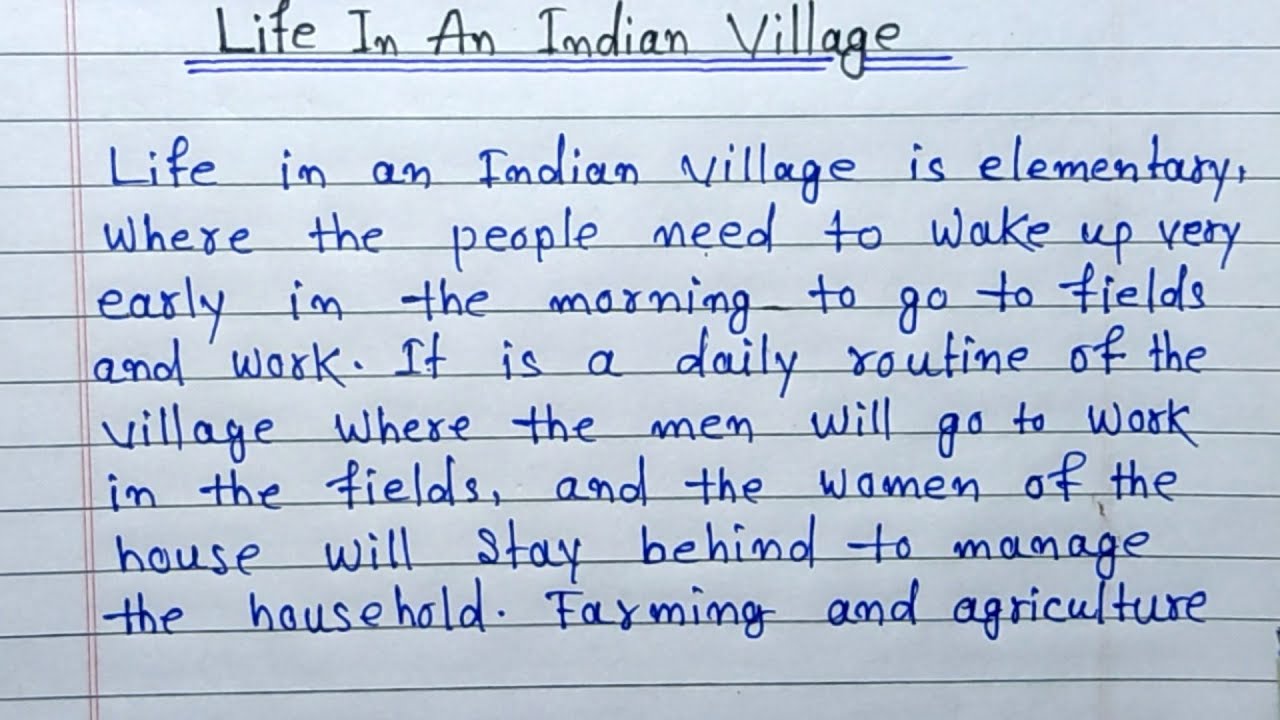 Life In An Indian Village
Life in an Indian village is elementary,
where the people need to wake up very
early in the morning to go to fields
and work. It is a daily routine of the
village where the men will go to work
in the fields, and the women of the
house will stay behind to manage
the household. Farming and agriculture